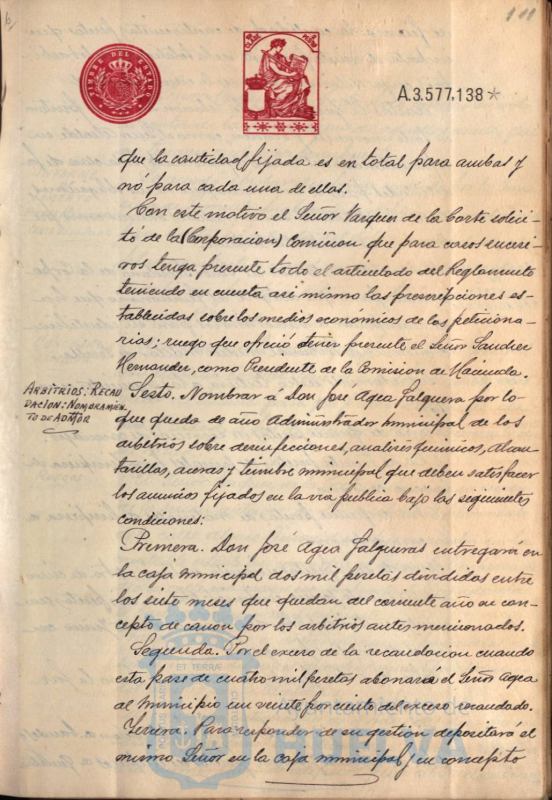 6
111
TIMBRE DEL ESTADO
A.3.577,138*
que la cantidad fijada es en total para ambas y
nó para cada una de ellas.
Con este motivo el Señor Vazquez de la Corte solici-
tó de la (Corporacion) Comision que para casos sucesi-
vos tenga presente todo el articulado del Reglamento
teniendo en cuenta asi mismo las prescripciones es-
tablecidas sobre los medios económicos de las peticiona-
rias; ruego que ofreció tener presente el Señor Sanchez
Hernandez, como Presidente de la Comision de Hacienda.
ARBITRIOS: RECAU
DACION: NOMBRAMIEN
TO DE ADMOR
Sesto. Nombrar á Don José Agea Falguera por lo
que queda de año Administrador municipal de los
arbitrios sobre desinfecciones, analisis quimicos, Alcan
tarillas, aceras y timbre municipal que deben satisfacer
los anuncios fijados en la via publica bajo las siguientes
condiciones:
Primera. Don José Agea Falgueras entregará en
la caja municipal dos mil pesetas divididas entre
los siete meses que quedan del corriente año en con-
cepto de canon por los arbitrios antes mencionados.
Segunda. Por el exceso de la recaudacion cuando
esta pase de cuatro mil pesetas abonará el Señor Agea
al Municipio un veinte por ciento del exceso recaudado.
Tercera. Para responder de su gestion depositará el
mismo Señor en la caja municipal y en concepto
ET TERRÆ
Ayuntamiento de
HUELVA